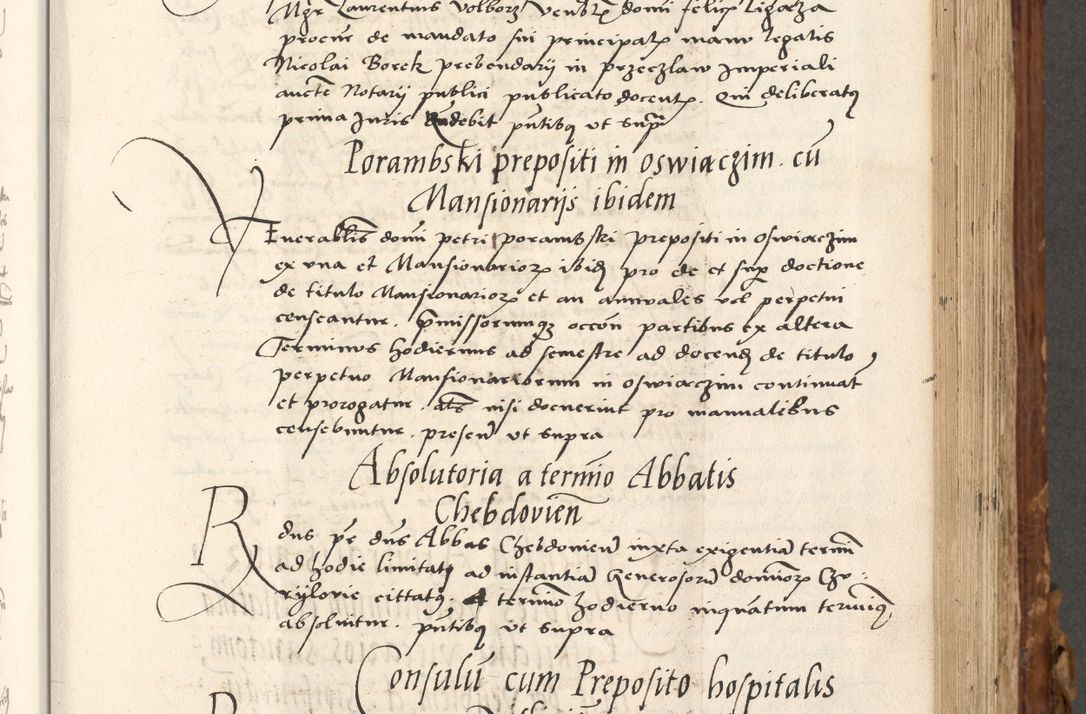 Mgr Laurentius Volborz Venbẽ domi felicẽ Ligaza
procur de mandato sui principalẽ manu legatis
Nicolai Borek prebendarij in przeczlaw Imperiali
aucte Notarij publici publicato docentẽ. Qui deliberatꝯ
prima Juris Rñdebit pñtibꝯ vt supra
Porambski prepositi in oswiaczim. cũ
Mansionarijs ibidem
Venerablis domi petri porambski prepositi in Oswiaczim
ex vna et Mansionarioꝝ ibidẽ pro de et supr doctione
de titulo Mansionarioꝝ et an annuales vel perpetui
censeantur. p̃missorumqꝫ occon̄ partibus ex altera
Terminus hodiernus ad semestre ad docendũ de titulo
perpetuo Mansionariorum in Oswiaczim continuat̃
et prorogatur. als̃ nisi docuerint pro manualibus
censebuntur. presen̄ vt supra
Absolutoria a termĩo Abbatis
Chebdovien̄
Rdus pr̃ dn̄s Abbas Chebdovien̄ iuxta exigentiã termini
ad hodie limitatꝯ ad instantiã Generosorũ dominoꝝ Chr:
rylovie cittatꝯ. A termĩo hodierno inquantum terminꝯ
absoluitur. pñtibꝯ vt supra
Consulũ cum Preposito hospitalis